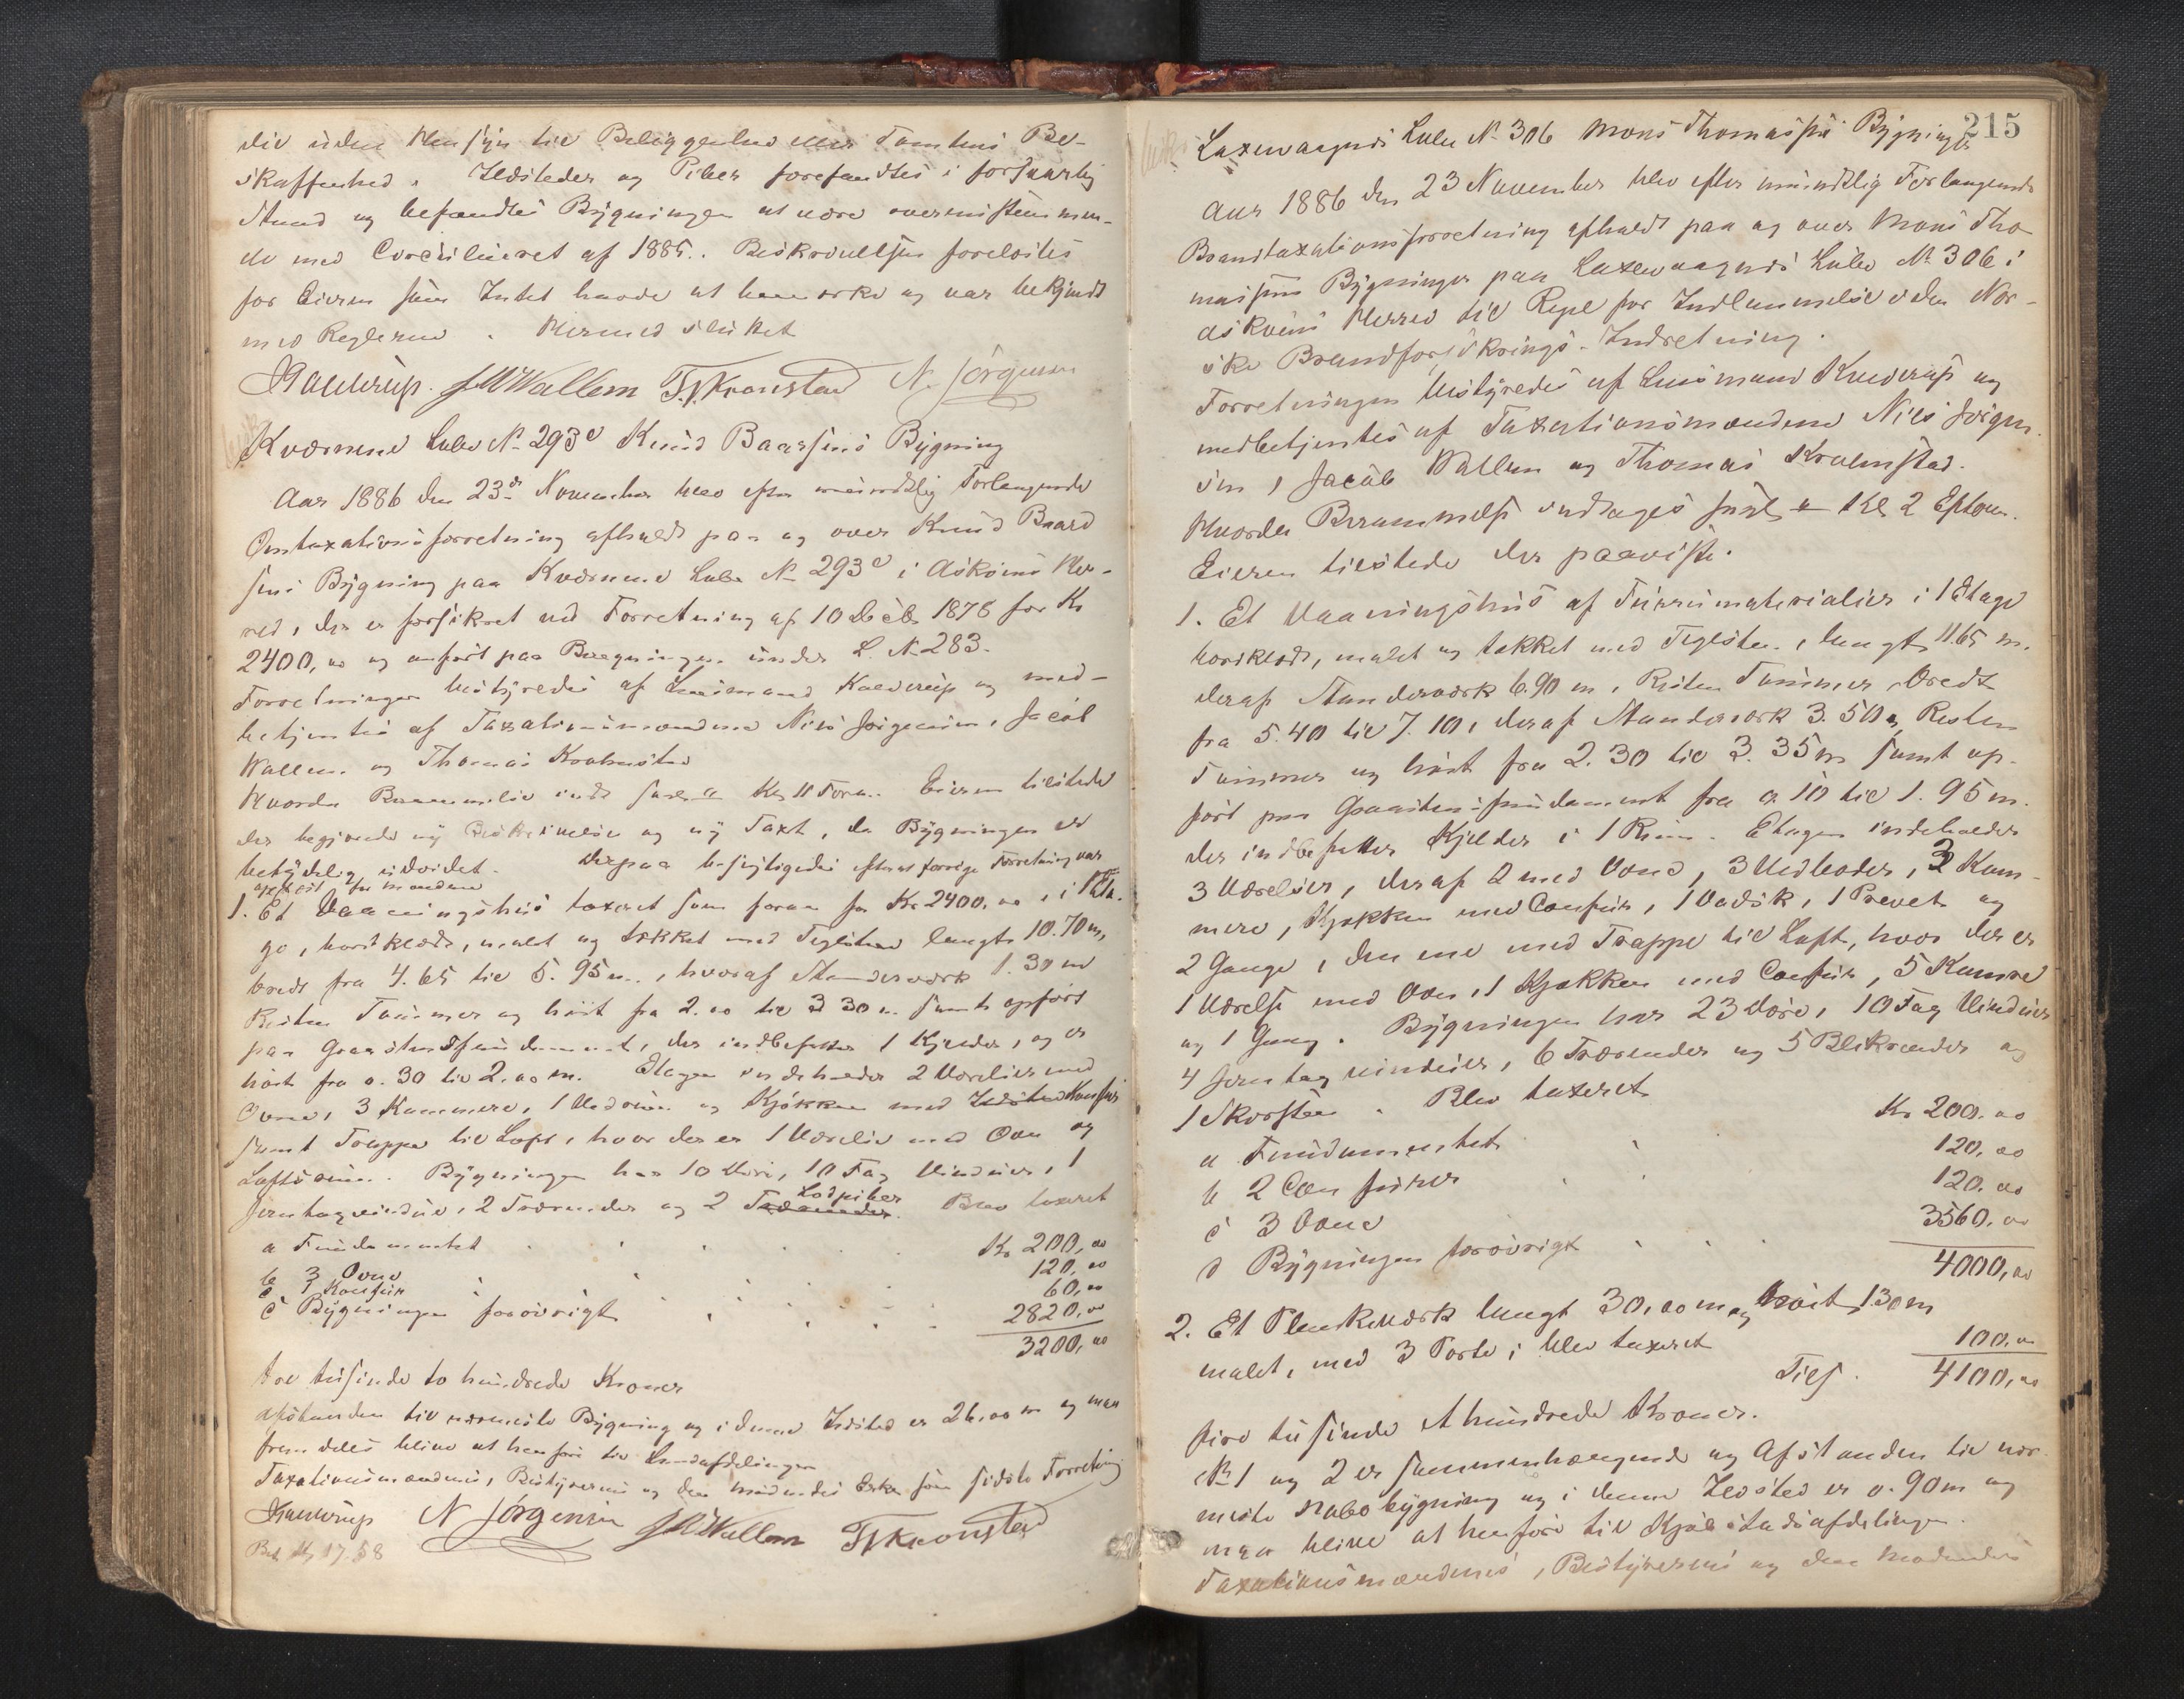 die uden Hensyn til Beliggenhed eller Tomtens Be-
skaffenhed. Ildsteder og Piber forefandtes i forsvarlig
Stand og befandtes Bygningen at være overensstemmen-
de med Circulæret af 1885. Beskrivelsen forelæstes
for Eieren som Intet havde at bemærke og var bekjendt
med Reglerne. Hermed sluttet
JWallem T. Kronstad N. Jörgensen
Kværnene Løbe N. 293c Knud Baarsens Bygning
Aar 1886 den 23de November blev efter mundtlig Forlangende
Omtaxationsforretning afholdt paa og over Knud Baard
sens Bygning paa Kværnene Løbe No 293c i Askøens Her-
red, der er forsikret ved Forretning af 10 Decbr 1878 for Kr
2400,00 og anført paa Beregningen under L. No 283.
Forretningen bestyredes af Lensmand Kaldrup og med-
betjentes af Taxationsmændene Niels Jörgensen, Jacob
Wallem og Thomas Krohnstad
Hvorda Berammelse Kl 11 Form. Eieren tilstede
der begjærede ny Beskrivelse og ny Taxt, da Bygningen er
betydelig udvidet. Derpaa besigtigedes efterat forrige Forretning var
oplæst for Mændene
1. Et Vaaningshus taxeret som foran for Kr 2400.00, i 1 Eta-
ge, bordklædt, malet og tækket med Teglsten langt 10.70 m,
bredt fra 4.65 til 5.95 m., hvoraf Standerværk 1.30 m
Resten Tømmer og høit fra 2.00 til 3.30 m. samt opført
paa Graastensfundament, der indbefatter 1 Kjælder, og er
høit fra 0.30 til 2.00 m. Etagen indeholder 2 Værelser med
Ovne, 3 Kammere, 1 Vedrum og Kjøkken med Ildsted Komfur
samt Trappe til Loft, hvor der er 1 Værelse med Ovn og
Loftsrum. Bygningen har 10 Døre, 10 Fag Vinduer, 1
Lodpiber
Jerntagvindue, 2 Trærender og 2 Trærender. Blev taxeret
a Fundamentet Kr 200,00
b 3 Ovne 120,00
c 1 Komfur 60,00
c Bygningen forøvrigt 2820,00
3200,00
tre tusinde to hundrede Kroner
Afstanden til nærmeste Bygning og i denne Ildsted er 26.00 m og maa
fremdeles blive at henføre til Landafdelingen
Taxationsmændenes, Bestyrerens og den Mødendes som sidste Forretning
N Jörgensen JWallem T. Kronstad
Bet. Kr 17.58
215
Laxevaagnes Løbe No 306 Mons Thomassens Bygninger
Aar 1886 den 23 November blev efter mundtlig Forlangende
Brandtaxationsforretning afholdt paa og over Mons Tho-
massens Bygninger paa Laxevaagnes Løbe No 306 i
Askøens Herred til for Indlemmelse i den Nor-
ske Brandforsikrings-Indretning.
Forretningen bestyredes af Lensmand Kaldrup og
medbetjentes af Taxationsmændene Niels Jörgen-
sen, Jacob Wallem og Thomas Krohnstad.
Hvorda Berammelse indtages Kl 2 Efterm.
Eieren tilstede der paaviste.
1. Et Vaaningshus af Furumaterialier i 1 Etage
bordklædt, malet og tækket med Teglsten, langt 11.65 m.
deraf Standerværk 6.90 m, Resten Tømmer, bredt
fra 5.40 til 7.10, deraf Standerværk 3.50 m, Resten
Tømmer og høit fra 2.30 til 3.35 m samt op-
ført paa Graastensfundament fra 0.10 til 1.95 m.
der indbefatter Kjelder i 1 Rum. Etagen indeholder
3 Værelser, deraf 2 med Ovne, 3 Vedboder, 3 Kam-
mere, Kjøkken med Comfur, 1 Vadsk, 1 Prevet og
2 Gange, den ene med Trappe til Loft, hvor der er
1 Værelse med Ovn, 1 Kjøkken med Comfur, 5 Kamre
og 1 Gang. Bygningen har 23 Døre, 10 Fag Vinduer
4 Jerntagvinduer, 6 Trærender og 5 Blikrender og
1 Skorsten. Blev taxeret
a Fundamentet Kr 200.00
b 2 Comfurer 120,00
c 3 Ovne 120.00
d Bygningen forøvrigt 3560.00
4000,00
2. Et Plankeværk langt 30,00 m og høit 1.30 m
malet, med 3 Porte, blev taxeret 100.00
Tils. 4100,00
fire tusinde et hundrede Kroner.
No 1 og 2 er sammenhængende og Afstanden til nær-
meste Nabobygning og i denne Ildsted er 0.90 m og
maa blive at henføre til Kjøbstadsafdelingen.
Taxationsmændenes, Bestyrerens og den Mødendes